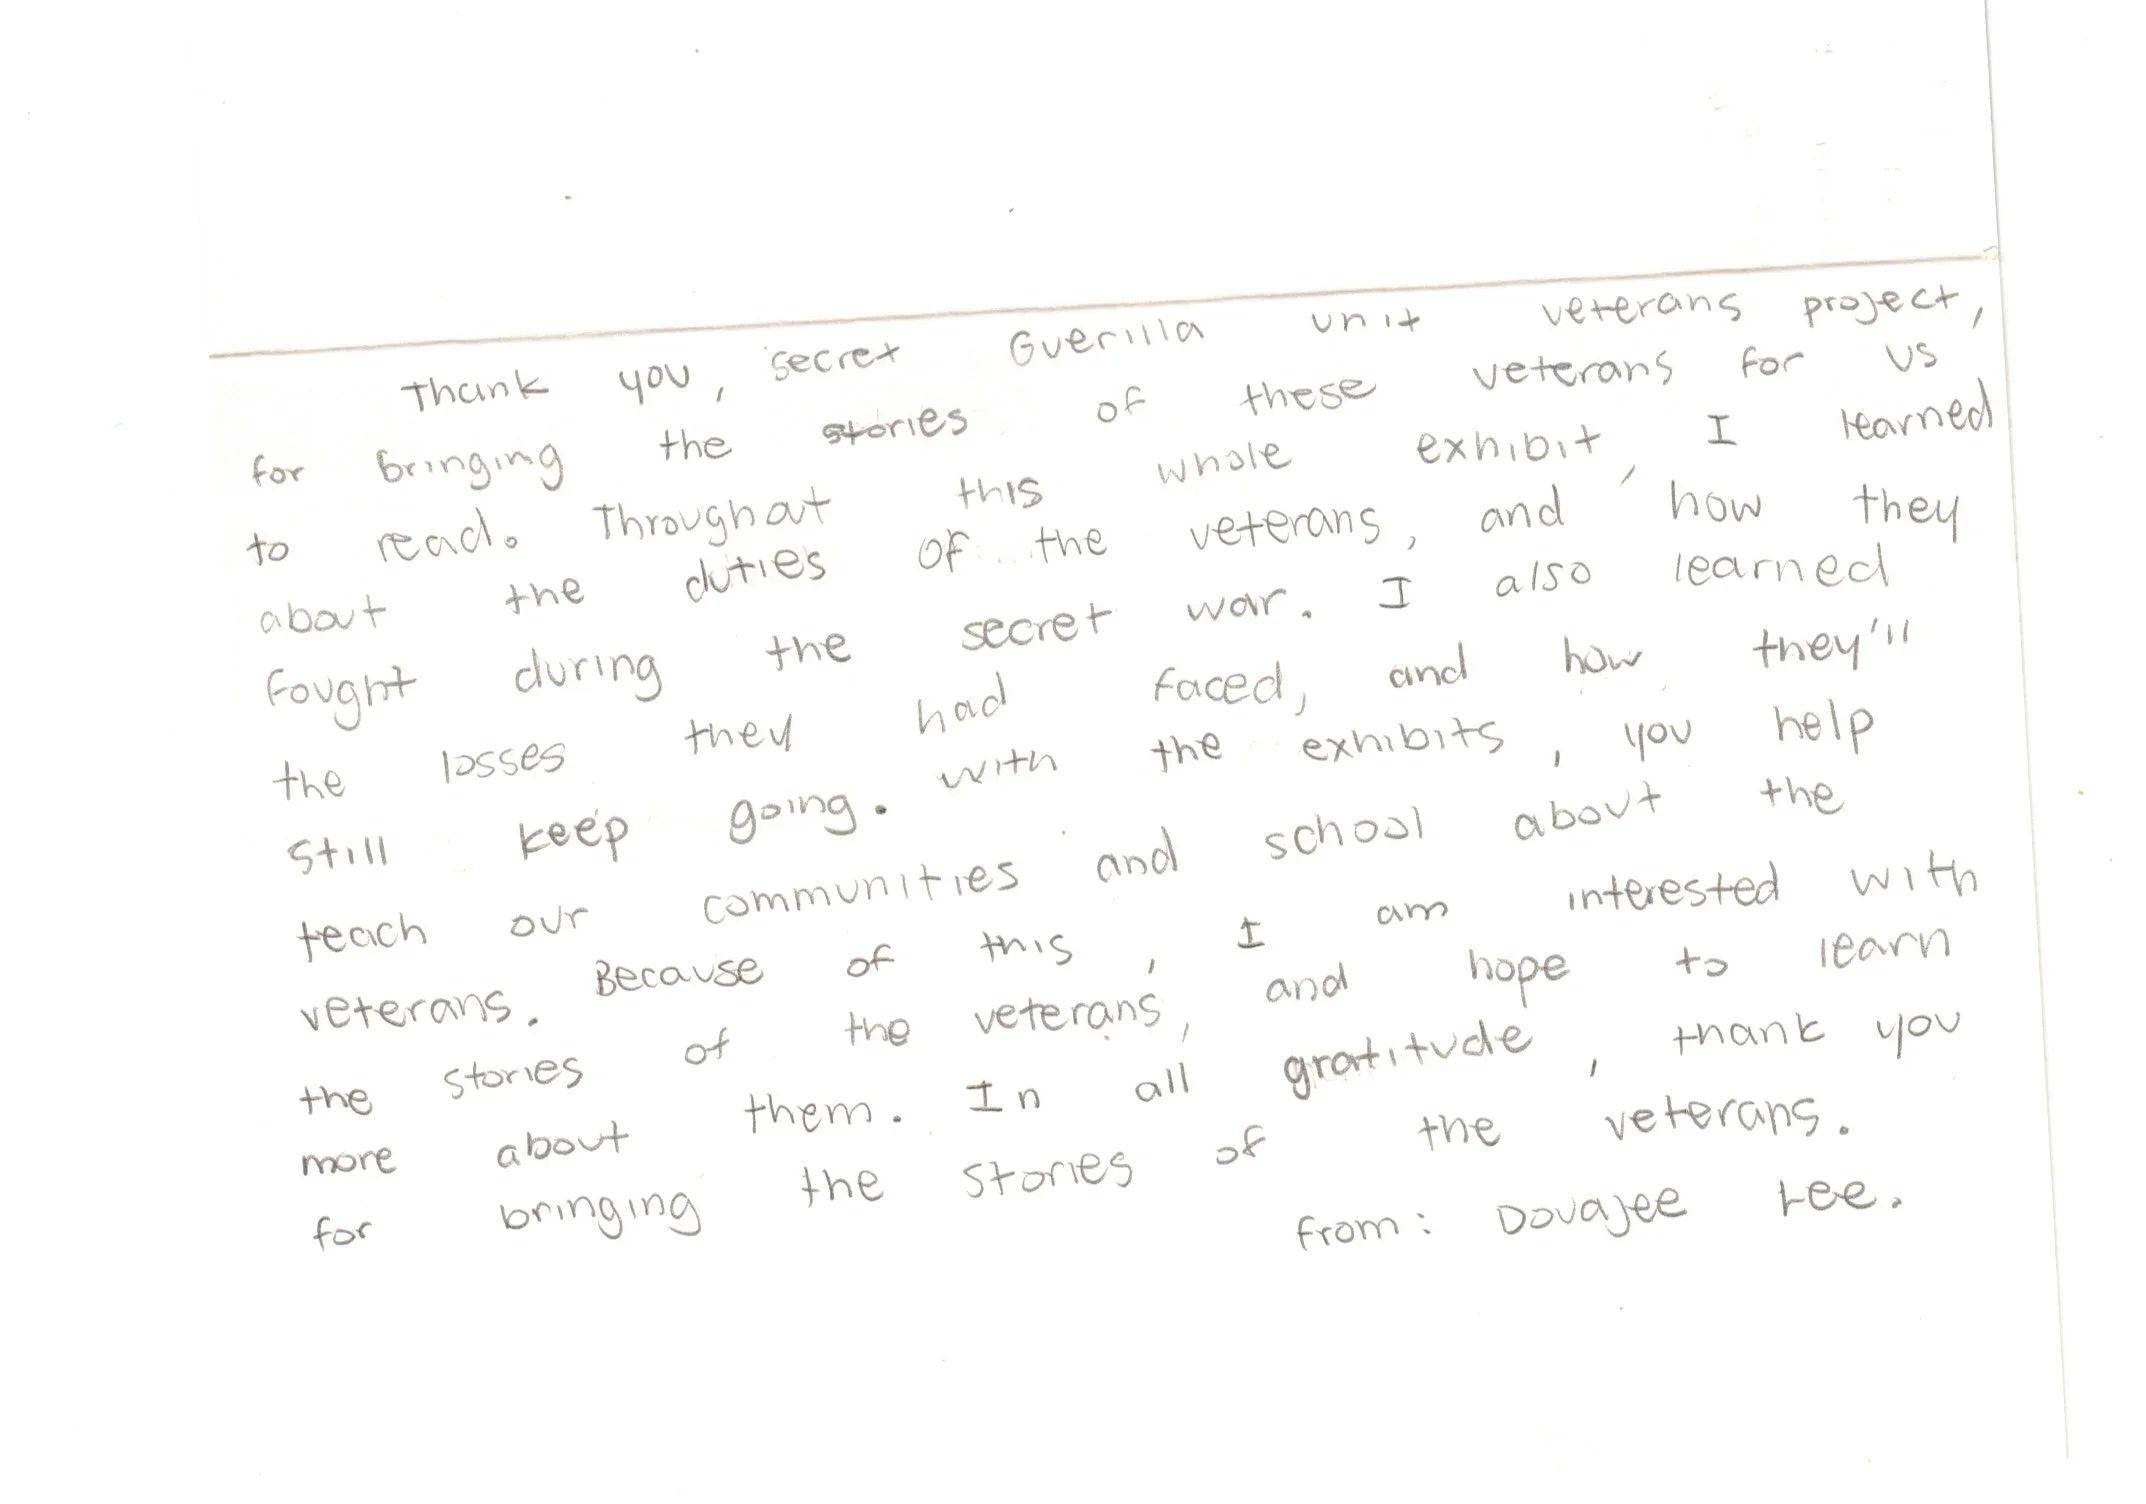 Thank you, secret Guerilla unit veterans project,
for bringing the stories of these veterans for us
to read. Throughout this whole exhibit, I learned
about the duties of the veterans, and how they
fought during the secret war. I also learned
the losses they had faced, and how they'll
still keep going. with the exhibits, you help
teach our communities and school about the
veterans. Because of this, I am interested with
the stories of the veterans, and hope to learn
more about them. In all gratitude, thank you
for bringing the stories of the veterans.
from: Douajee Lee.